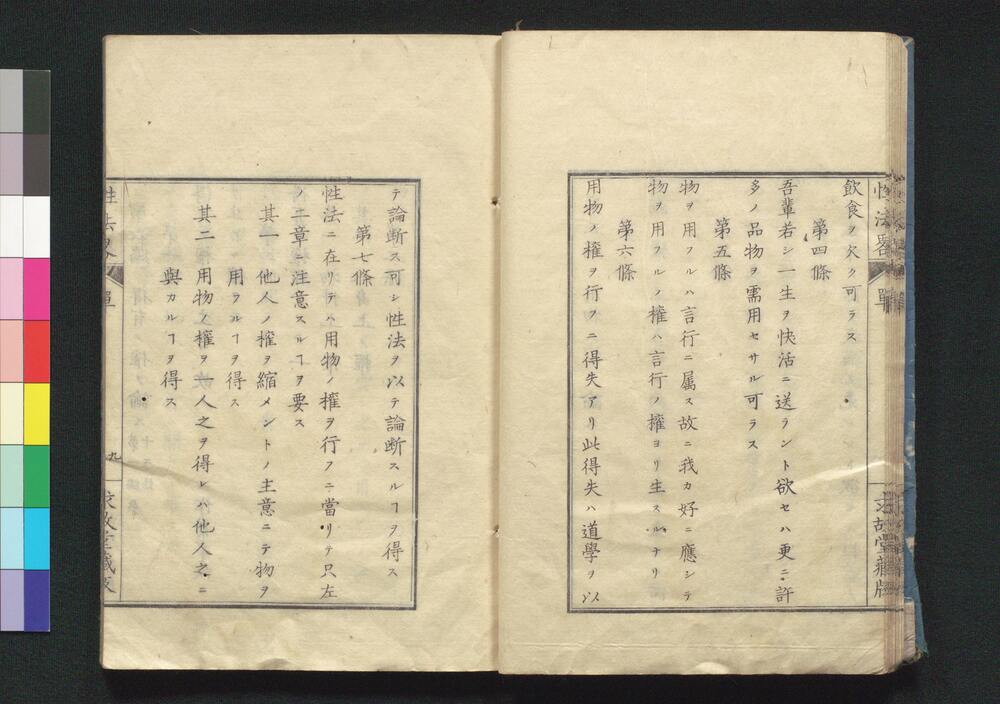 性法畧
單
求故堂藏版
飲食ヲ欠ク可ラス
第四條
吾輩若シ一生ヲ快活ニ送ラント欲セハ更ニ許
多ノ品物ヲ需用セサル可ラス
第五條
物ヲ用フルハ言行ニ属ス故ニ我カ好ニ應シテ
物ヲ用フルノ權ハ言行ノ權ヨリ生スルナリ
第六條
用物ノ權ヲ行フニ得失アリ此得失ハ道學ヲ以
テ論斷ス可シ性法ヲ以テ論斷スルヿヲ得ス
第七條
性法ニ在リテハ用物ノ權ヲ行フニ當リテ只左
ノ二章ニ注意スルヿヲ要ス
其一 他人ノ權ヲ縮メントノ主意ニテ物ヲ
用ヲルヿヲ得ス
其二 用物ノ權ヲ故人之ヲ得レハ他人之ニ
與カルヿヲ得ス
性法畧
單
九
求故堂藏版